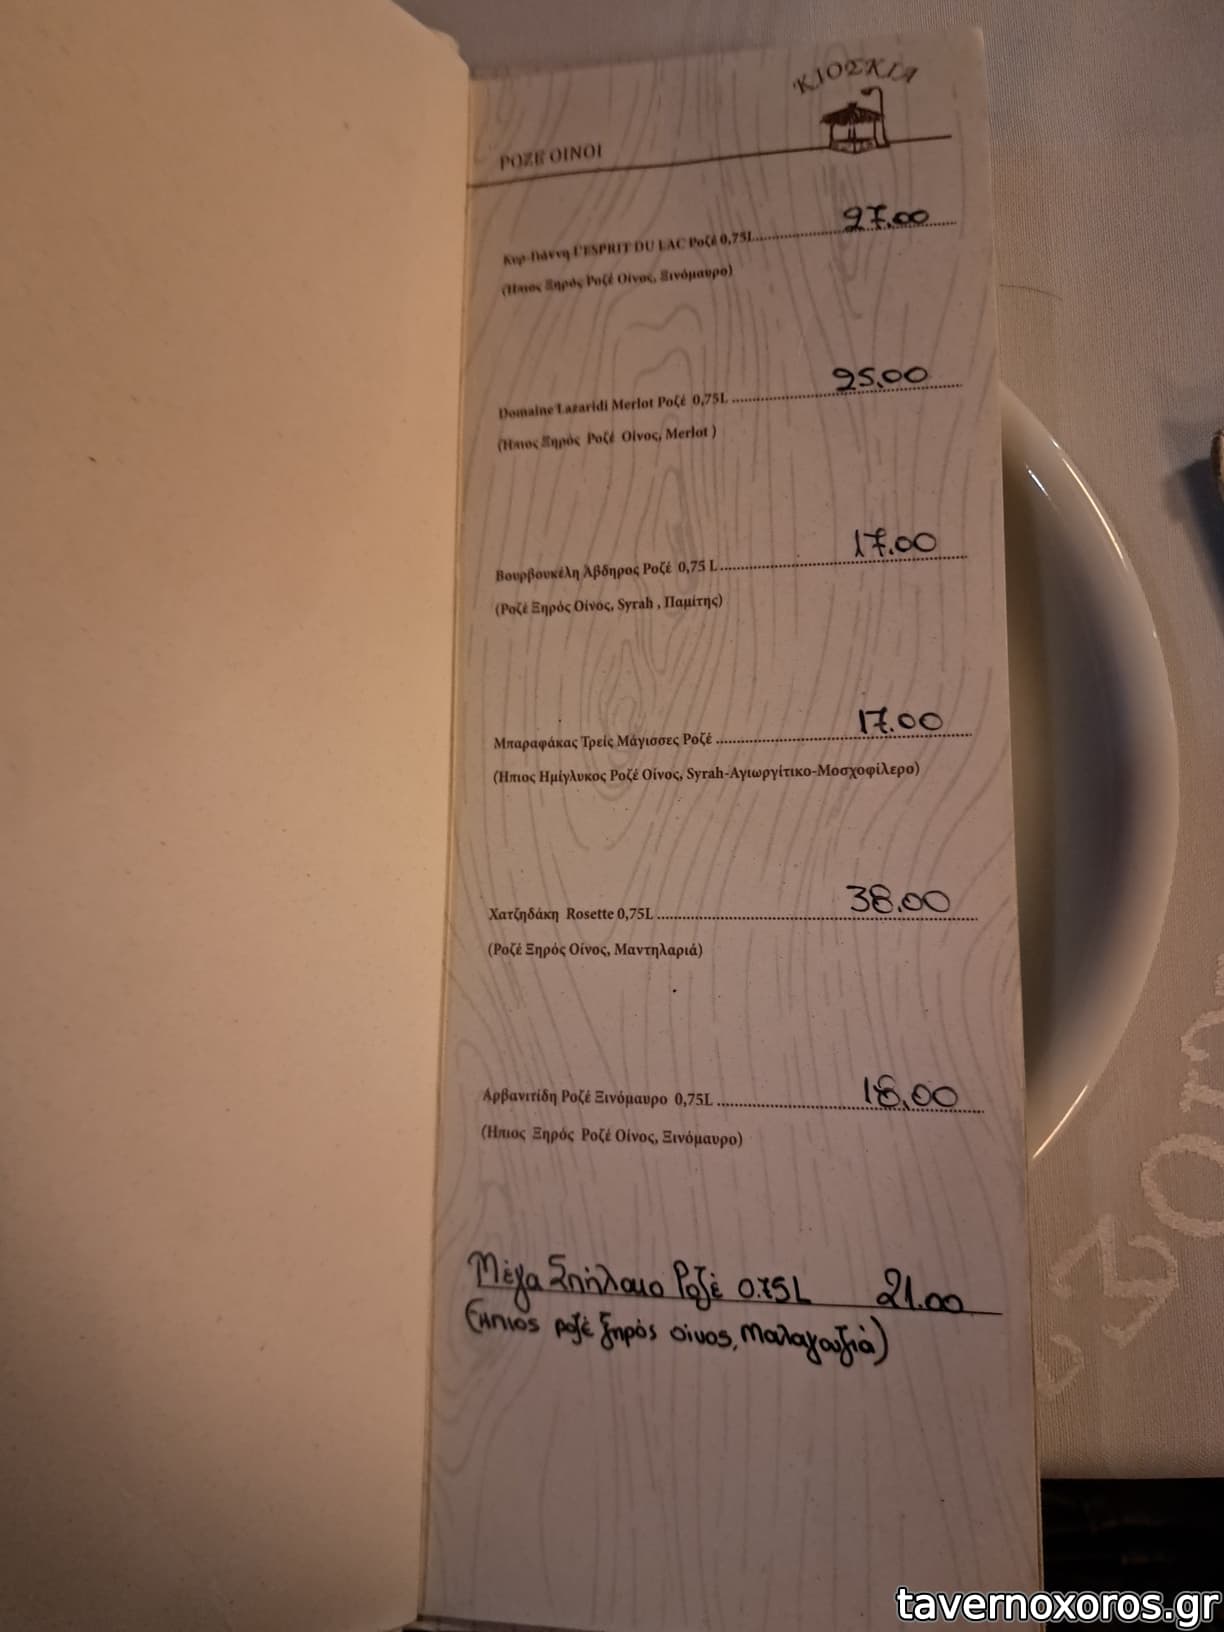 ΚΙΟΣΚΙΑ
ΡΟΖΕ ΟΙΝΟΙ
Κυρ-Γιάννη L'ESPRIT DU LAC Ροζέ 0,75L 27.00
(Ήπιος Ξηρός Ροζέ Οίνος, Ξινόμαυρο)
Domaine Lazaridi Merlot Ροζέ 0,75L 25.00
(Ήπιος Ξηρός Ροζέ Οίνος, Merlot )
Βουρβουκέλη Άβδηρος Ροζέ 0,75 L 17.00
(Ροζέ Ξηρός Οίνος, Syrah , Παμίτης)
Μπαραφάκας Τρείς Μάγισσες Ροζέ 17.00
(Ήπιος Ημίγλυκος Ροζέ Οίνος, Syrah-Αγιωργίτικο-Μοσχοφίλερο)
Χατζηδάκη Rosette 0,75L 38.00
(Ροζέ Ξηρός Οίνος, Μαντηλαριά)
Αρβανιτίδη Ροζέ Ξινόμαυρο 0,75L 18.00
(Ήπιος Ξηρός Ροζέ Οίνος, Ξινόμαυρο)
Μέγα Σπήλαιο Ροζέ 0.75L 21.00
(Ήπιος ροζέ ξηρός οίνος, Μαλαγουζιά)
tavernoxoros.gr